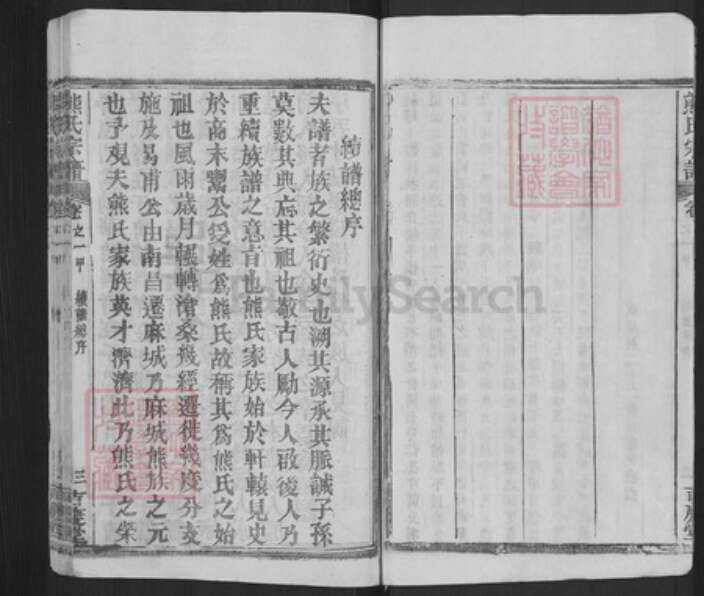 熊氏宗譜
續譜總序
夫譜者族之繁衍史也溯其源承其脈誠子孫
莫數其典忘其祖也敬古人勵今人啟後人乃
重續族譜之意旨也熊氏家族始於軒轅見史
於商末鬻公受姓為熊氏故稱其為熊氏之始
祖也風雨歲月輾轉滄桑幾經遷徙幾度分支
施及易甫公由南昌遷麻城乃麻城熊族之元
也予观夫熊氏家族英才濟濟此乃熊氏之榮
熊氏宗譜 卷之一 續譜總序
FamilySearch